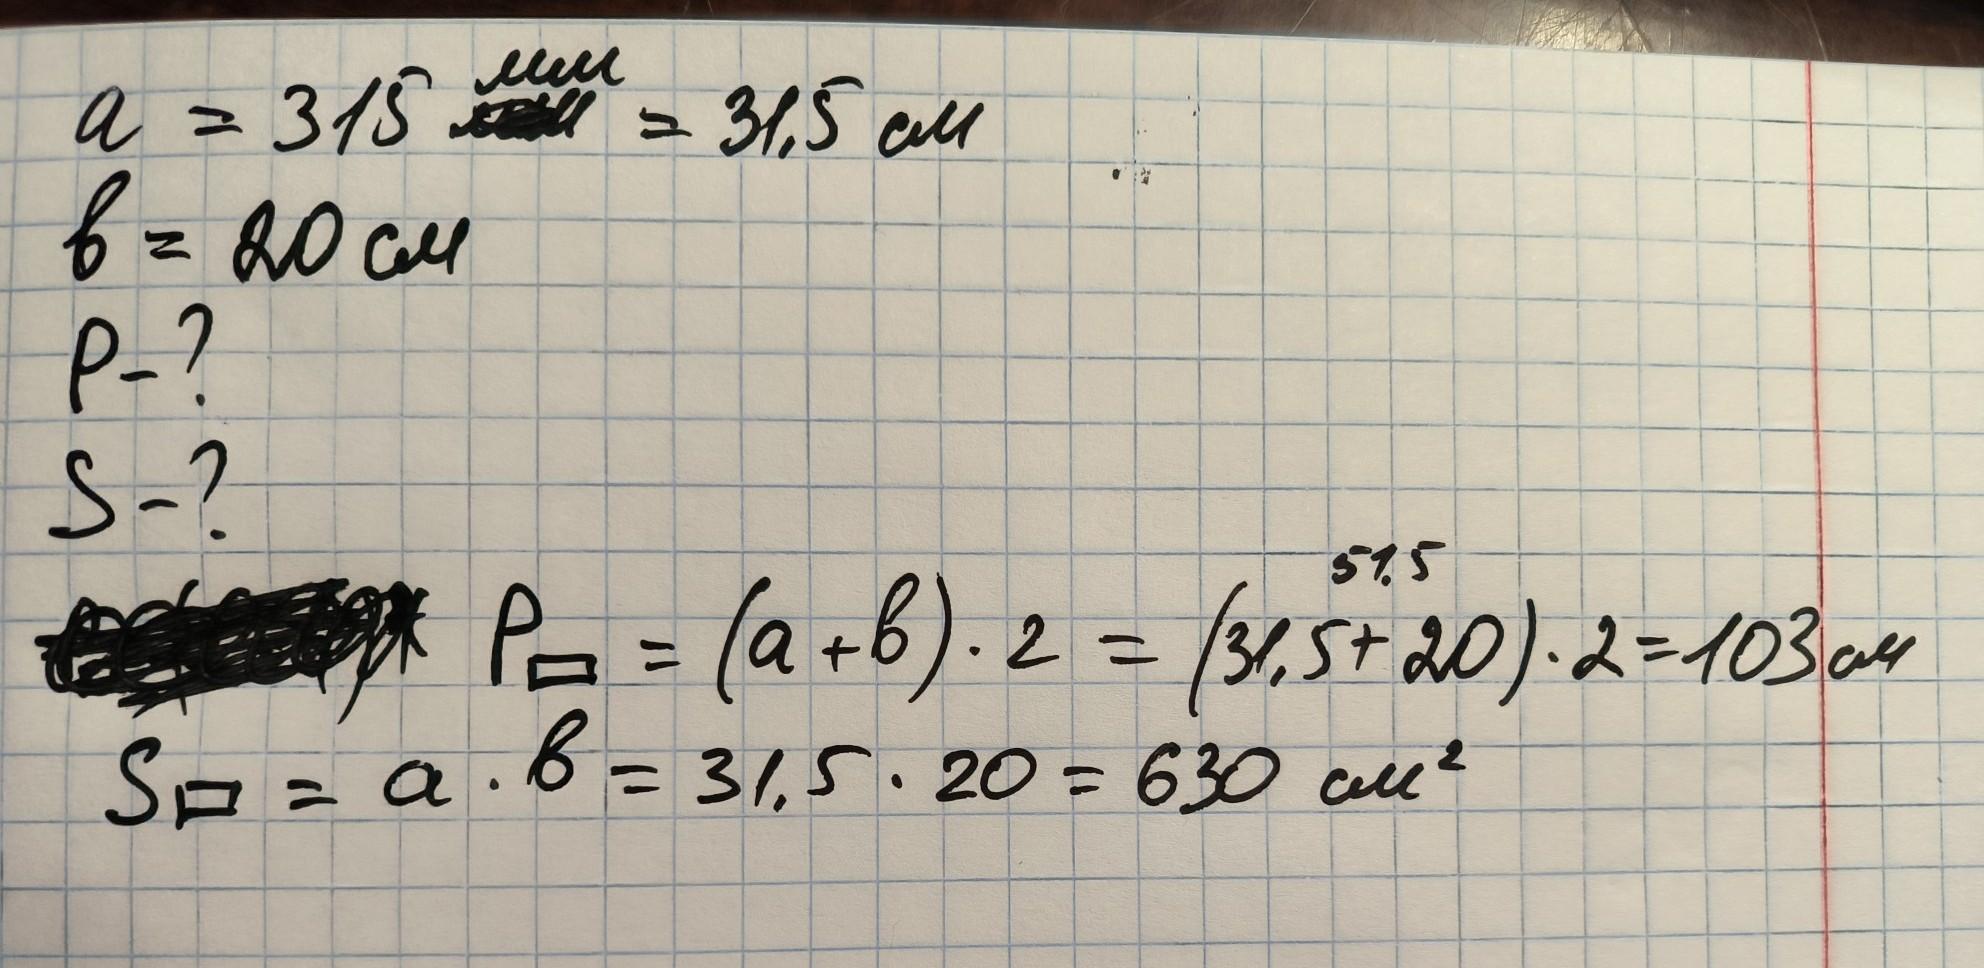 a = 315 мм = 31,5 см
в = 20 см
P - ?
S - ?
51,5
P▭ = (a + в) · 2 = (31,5 + 20) · 2 = 103 см
S▭ = a · в = 31,5 · 20 = 630 см²